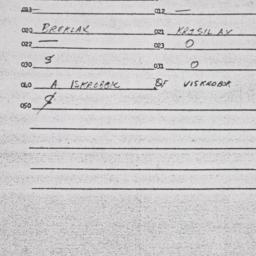 011 — 012 —
020 BREKLAK 021 KRISILAY
022 — 023 0
030 8 031 0
040 A ISKROBOK OF VISKROBOR
050